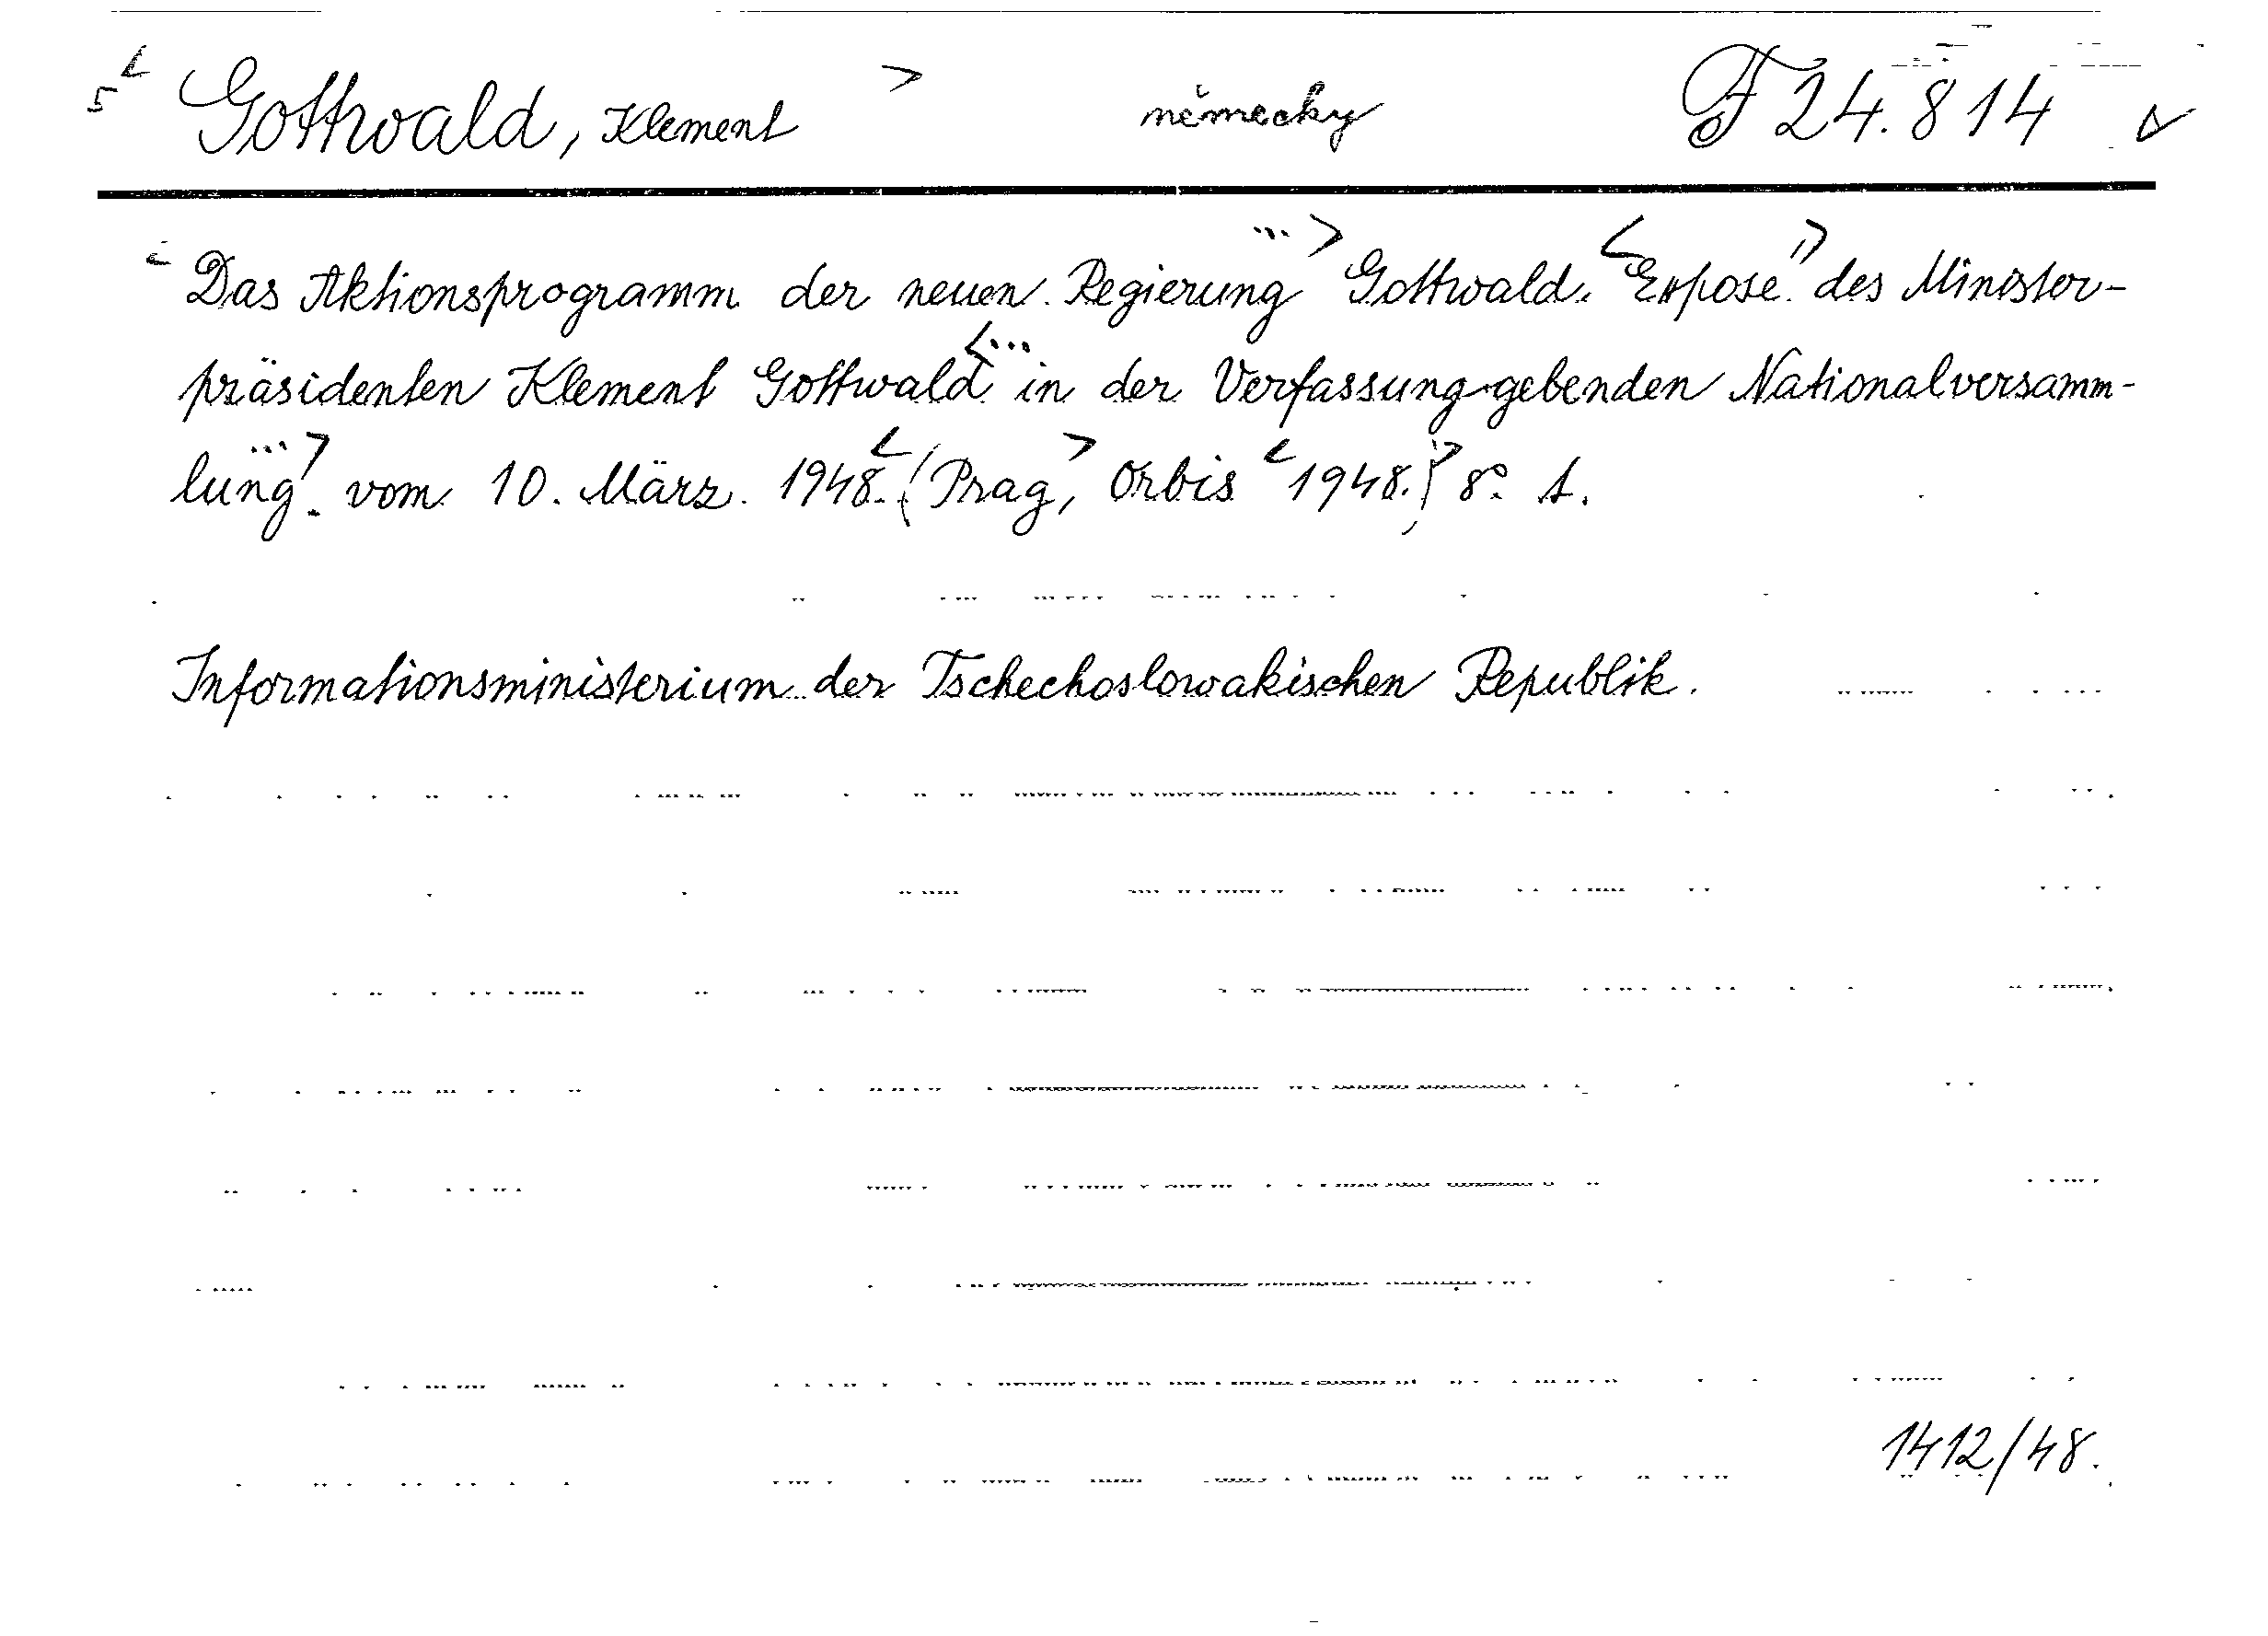 Gottwald, Klement německy F 24.814
Das Aktionsprogramm der neuen Regierung Gottwald. Expose des Minister-
präsidenten Klement Gottwald in der Verfassung-gebenden Nationalversamm-
lung. vom 10. März. 1948. (Prag, Orbis 1948.) 8° 1.
Informationsministerium der Tschechoslowakischen Republik.
1412/48.